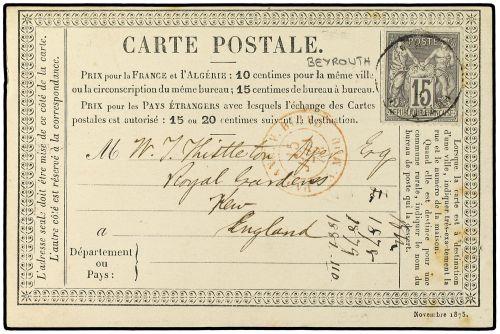 CARTE POSTALE.
BEYROUTH
PRIX pour la FRANCE et l'ALGÉRIE : 10 centimes pour la même ville
ou la circonscription du même bureau ; 15 centimes de bureau à bureau.
PRIX pour les PAYS ÉTRANGERS avec lesquels l'échange des Cartes
postales est autorisé : 15 ou 20 centimes suivant la destination.
POSTE
15
M W. T. Thistleton Dyer Esq
Royal Gardens
Kew
a England
Département
ou
Pays :
L'adresse seule doit être mise de ce côté de la carte.
L'autre côté est réservé à la correspondance.
Lorsque la carte est à destination
d'une ville, indiquer très-exactement la
rue et le numéro de la maison.
Quand elle est destinée pour une
commune rurale, indiquer le nom du
bureau de poste qui la dessert.
1878
1879
Novembre 1875.